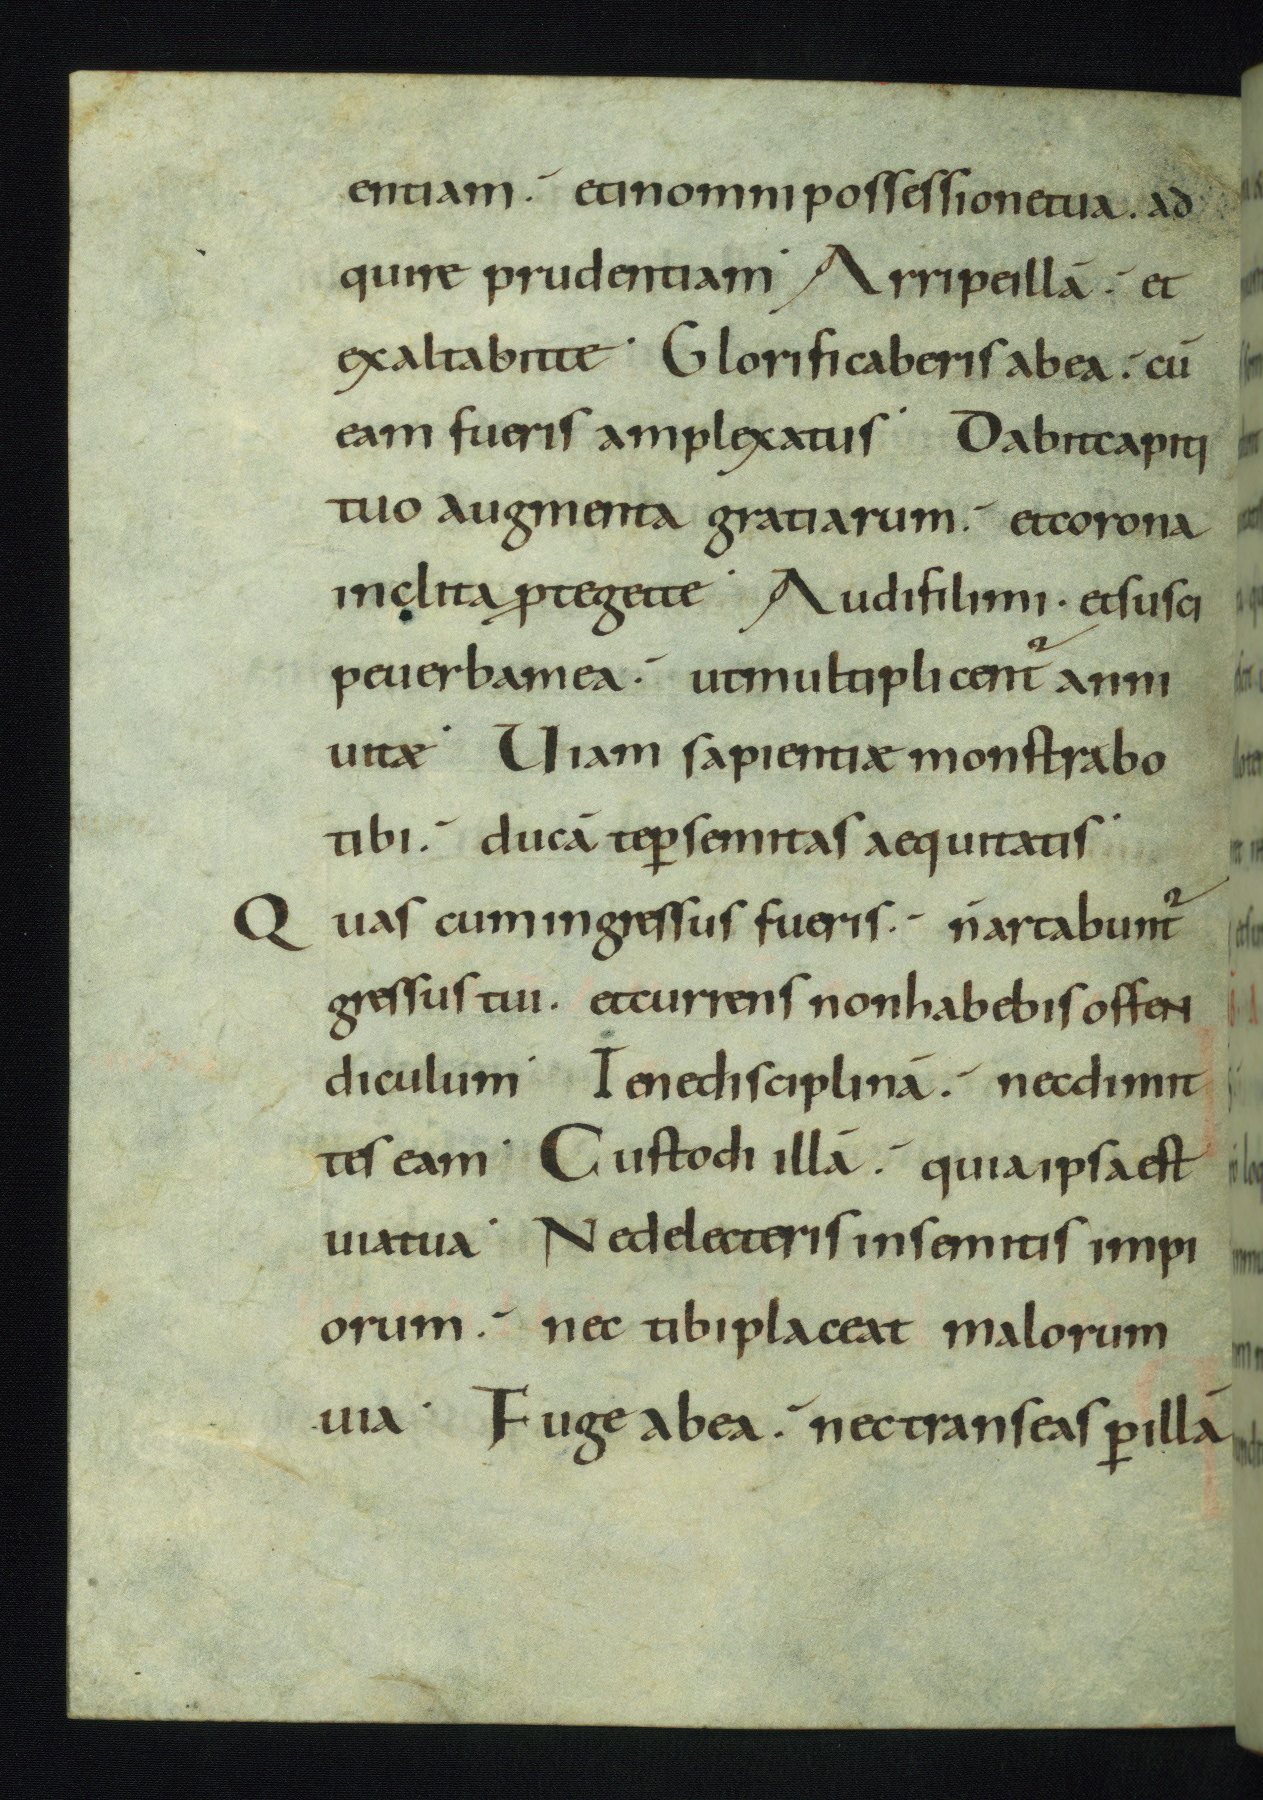 entiam. etinomnipossessionetua. ad
quire prudentiam Arripeillā. et
exaltabitte Glorificaberis abea. cū
eam fueris amplexatus Dabitcapiti
tuo augmenta gratiarum. etcorona
inclita ꝓtegette Audifilimi. etsusci
peuerbamea. utmultiplicent᷑ anni
uitæ Uiam sapientiæ monstrabo
tibi. ducā teꝑsemitas aequitatis
Quas cumingressus fueris. n̄artabunt᷑
gressus tui. etcurrens nonhabebis offen
diculum Tenedisciplinā. necdimit
tes eam Custodi illā. quiaipsaest
uiatua Nedelecteris insemitis impi
orum. nec tibiplaceat malorum
uia Fuge abea. nectranseas ꝑillā